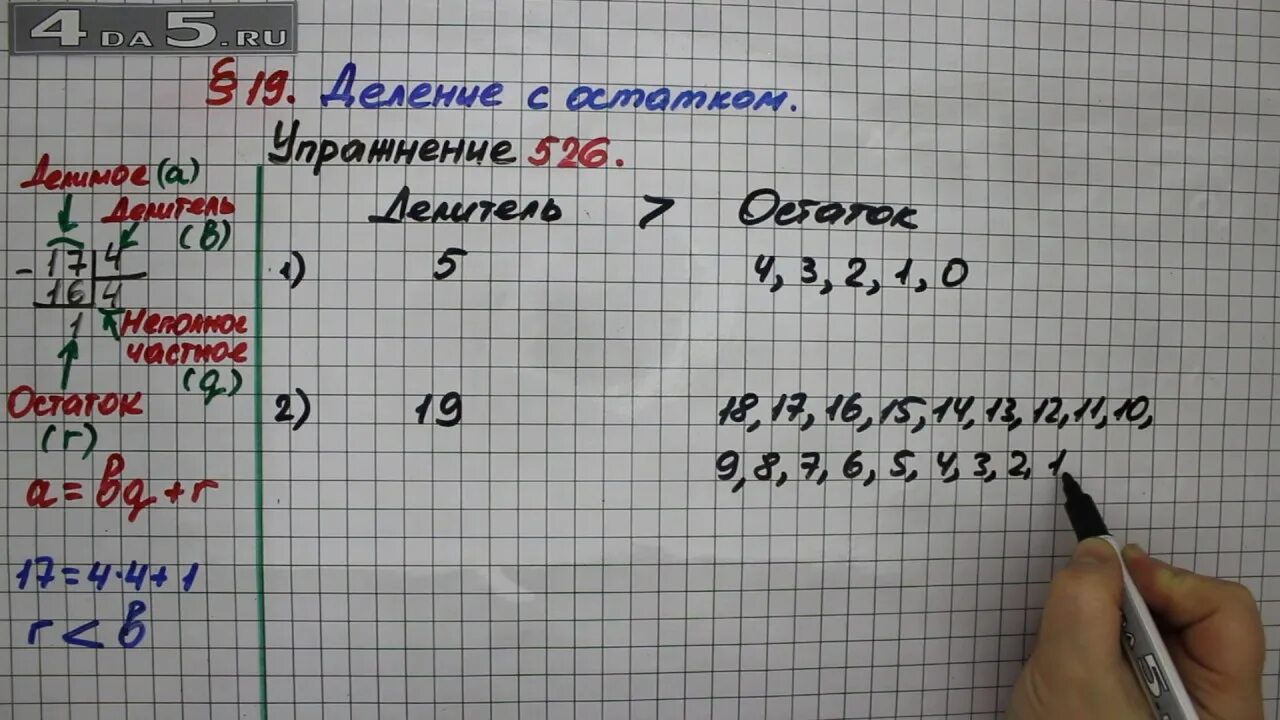 4DA5.RU
§ 19. Деление с остатком.
Упражнение 526.
Делимое (a)
Делитель
(b)
- 17 4
16 4
1
Неполное
частное
(q)
Остаток
(r)
a = bq + r
17 = 4 · 4 + 1
r < b
Делитель > Остаток
1) 5 4, 3, 2, 1, 0
2) 19 18, 17, 16, 15, 14, 13, 12, 11, 10,
9, 8, 7, 6, 5, 4, 3, 2, 1,
DA 5